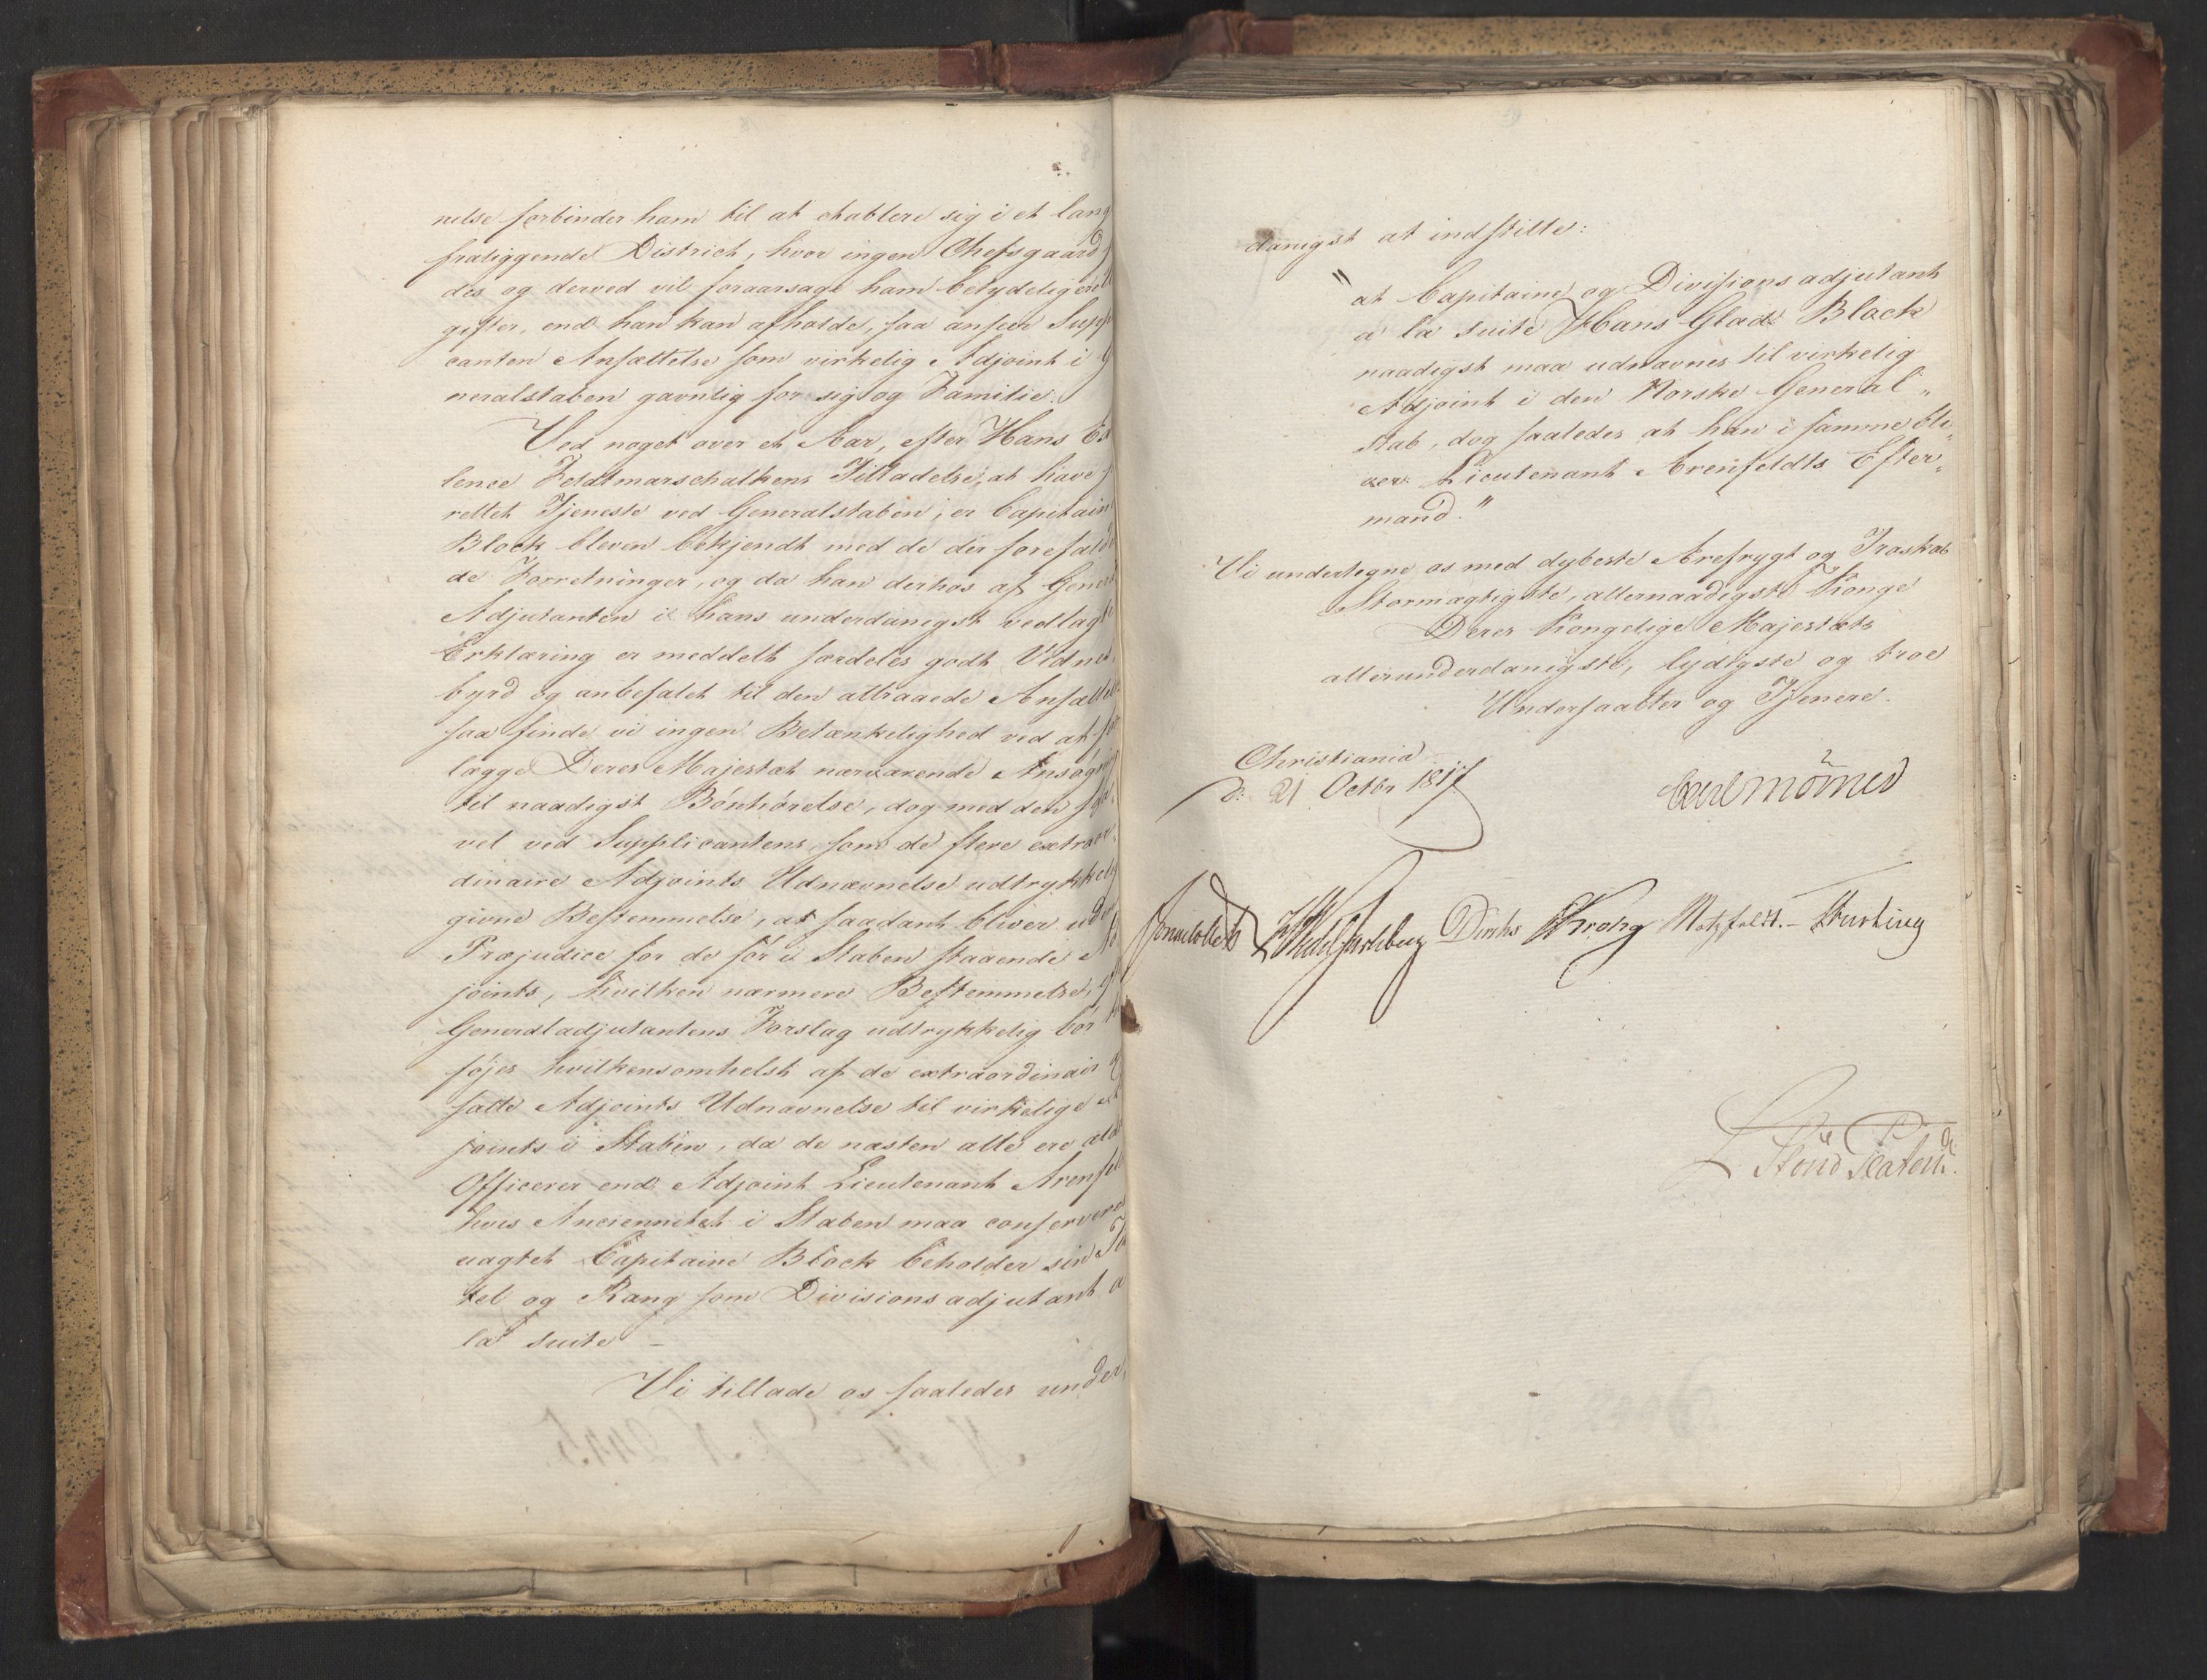 nelse forbinder ham til at etablere sig i et lang
fraliggende District, hvor ingen Chefsgaard
des og derved vil foraarsage ham betydeligere
gifter, end han kan afholde, saa anseer Supp
canten Ansættelse som virkelig Adjoint i G
neralstaben gavnlig for sig og Familie.
Ved noget over et Aar, efter Hans Ex
lence Feldtmarschalkens Tilladelse, at have
rettet Tjeneste ved Generalstaben, er Capitain
Block bleven bekjendt med de der forefald
de Forretninger, og da han derhos af Gene
Adjutanten i hans underdanigst vedlagte
Erklæring er meddelt særdeles godt Vidnes
byrd og anbefalet til den attraaede Ansættel
saa finde vi ingen Betænkelighed ved at fo
lægge Deres Majestæt nærværende Ansøg
til naadigst Bönhörelse, dog med den
vel ved Supplicantens, som de flere extraor
dinaire Adjoints Udnævnelse udtrykkelig
givne Bestemmelse, at saadant bliver uden
Præjudice for de för i Staben staaende A
joints, hvilken nærmere Bestemmelse,
Generaladjutantens Forslag udtrykkelig bör
föjes hvilkensomhelst af de extraordinair
satte Adjoints Udnævnelse til virkelige A
joints i Staben, da de næsten alle ere æld
Officerer end Adjoint Lieutenant Arenfel
hvis Anciennitet i Staben maa conserveres
uagtet Capitaine Block beholder sin Ti
tel og Rang som Divisionsadjutant a
la suite –
Vi tillade os saaledes under,
danigst at indstille:
"at Capitaine og Divisionsadjutant
a la suite Hans Glad Block
naadigst maa udnævnes til virkelig
Adjoint i den Norske General„
stab, dog saaledes at han i samme bli„
ver Lieutenant Arenfeldts Efter„
mand."
Vi undertegne os med dybeste Ærefrygt og Troskab
Stormægtigste, allernaadigste Konge
Deres Kongelige Majestæts
allerunderdanigste, lydigste og troe
Undersaatter og Tjenere.
Christiania
d: 21 Octbr 1817
Carl Mörner
Sommerhielm HWedelJarlsberg Diriks CKrohg Motzfeldt. – Hurting